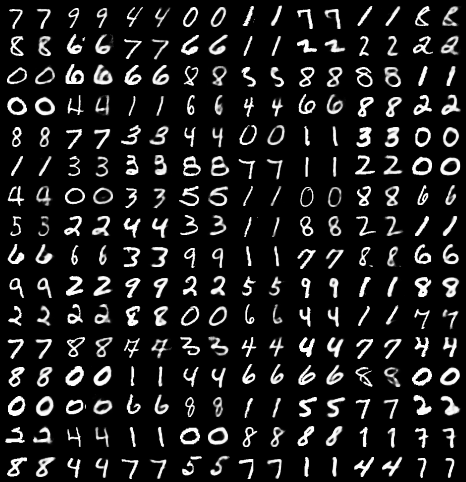 7 7 9 9 4 4 0 0 1 1 7 7 1 1 8 8
8 8 6 6 7 7 6 6 1 1 2 2 2 2 2 2
0 0 6 6 6 6 8 8 5 5 8 8 8 8 1 1
0 0 4 4 1 1 6 6 4 4 6 6 8 8 2 2
8 8 7 7 3 3 4 4 0 0 1 1 3 3 0 0
1 1 3 3 3 3 8 8 7 7 1 1 2 2 0 0
4 4 0 0 3 3 5 5 1 1 0 0 8 8 6 6
5 5 2 2 4 4 3 3 1 1 8 8 2 2 1 1
6 6 6 6 3 3 9 9 1 1 7 7 8 8 6 6
9 9 2 2 9 9 2 2 5 5 9 9 1 1 8 8
2 2 2 2 8 8 0 0 6 6 4 4 1 1 7 7
7 7 8 8 7 7 3 3 4 4 4 4 7 7 4 4
8 8 0 0 1 1 4 4 6 6 6 6 8 8 0 0
0 0 0 0 6 6 8 8 1 1 5 5 7 7 2 2
2 2 4 4 1 1 0 0 8 8 8 8 1 1 7 7
8 8 4 4 7 7 5 5 7 7 1 1 4 4 7 7